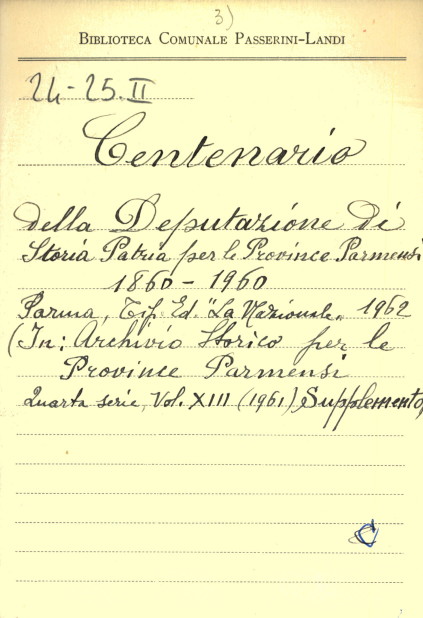 3)
BIBLIOTECA COMUNALE PASSERINI-LANDI
24-25.II
Centenario
della Deputazione di
Storia Patria per le Province Parmensi
1860-1960
Parma, Tip. Ed. "La Nazionale" 1962
(In: Archivio Storico per le
Province Parmensi
Quarta serie, Vol. XIII (1961) Supplemento)
C